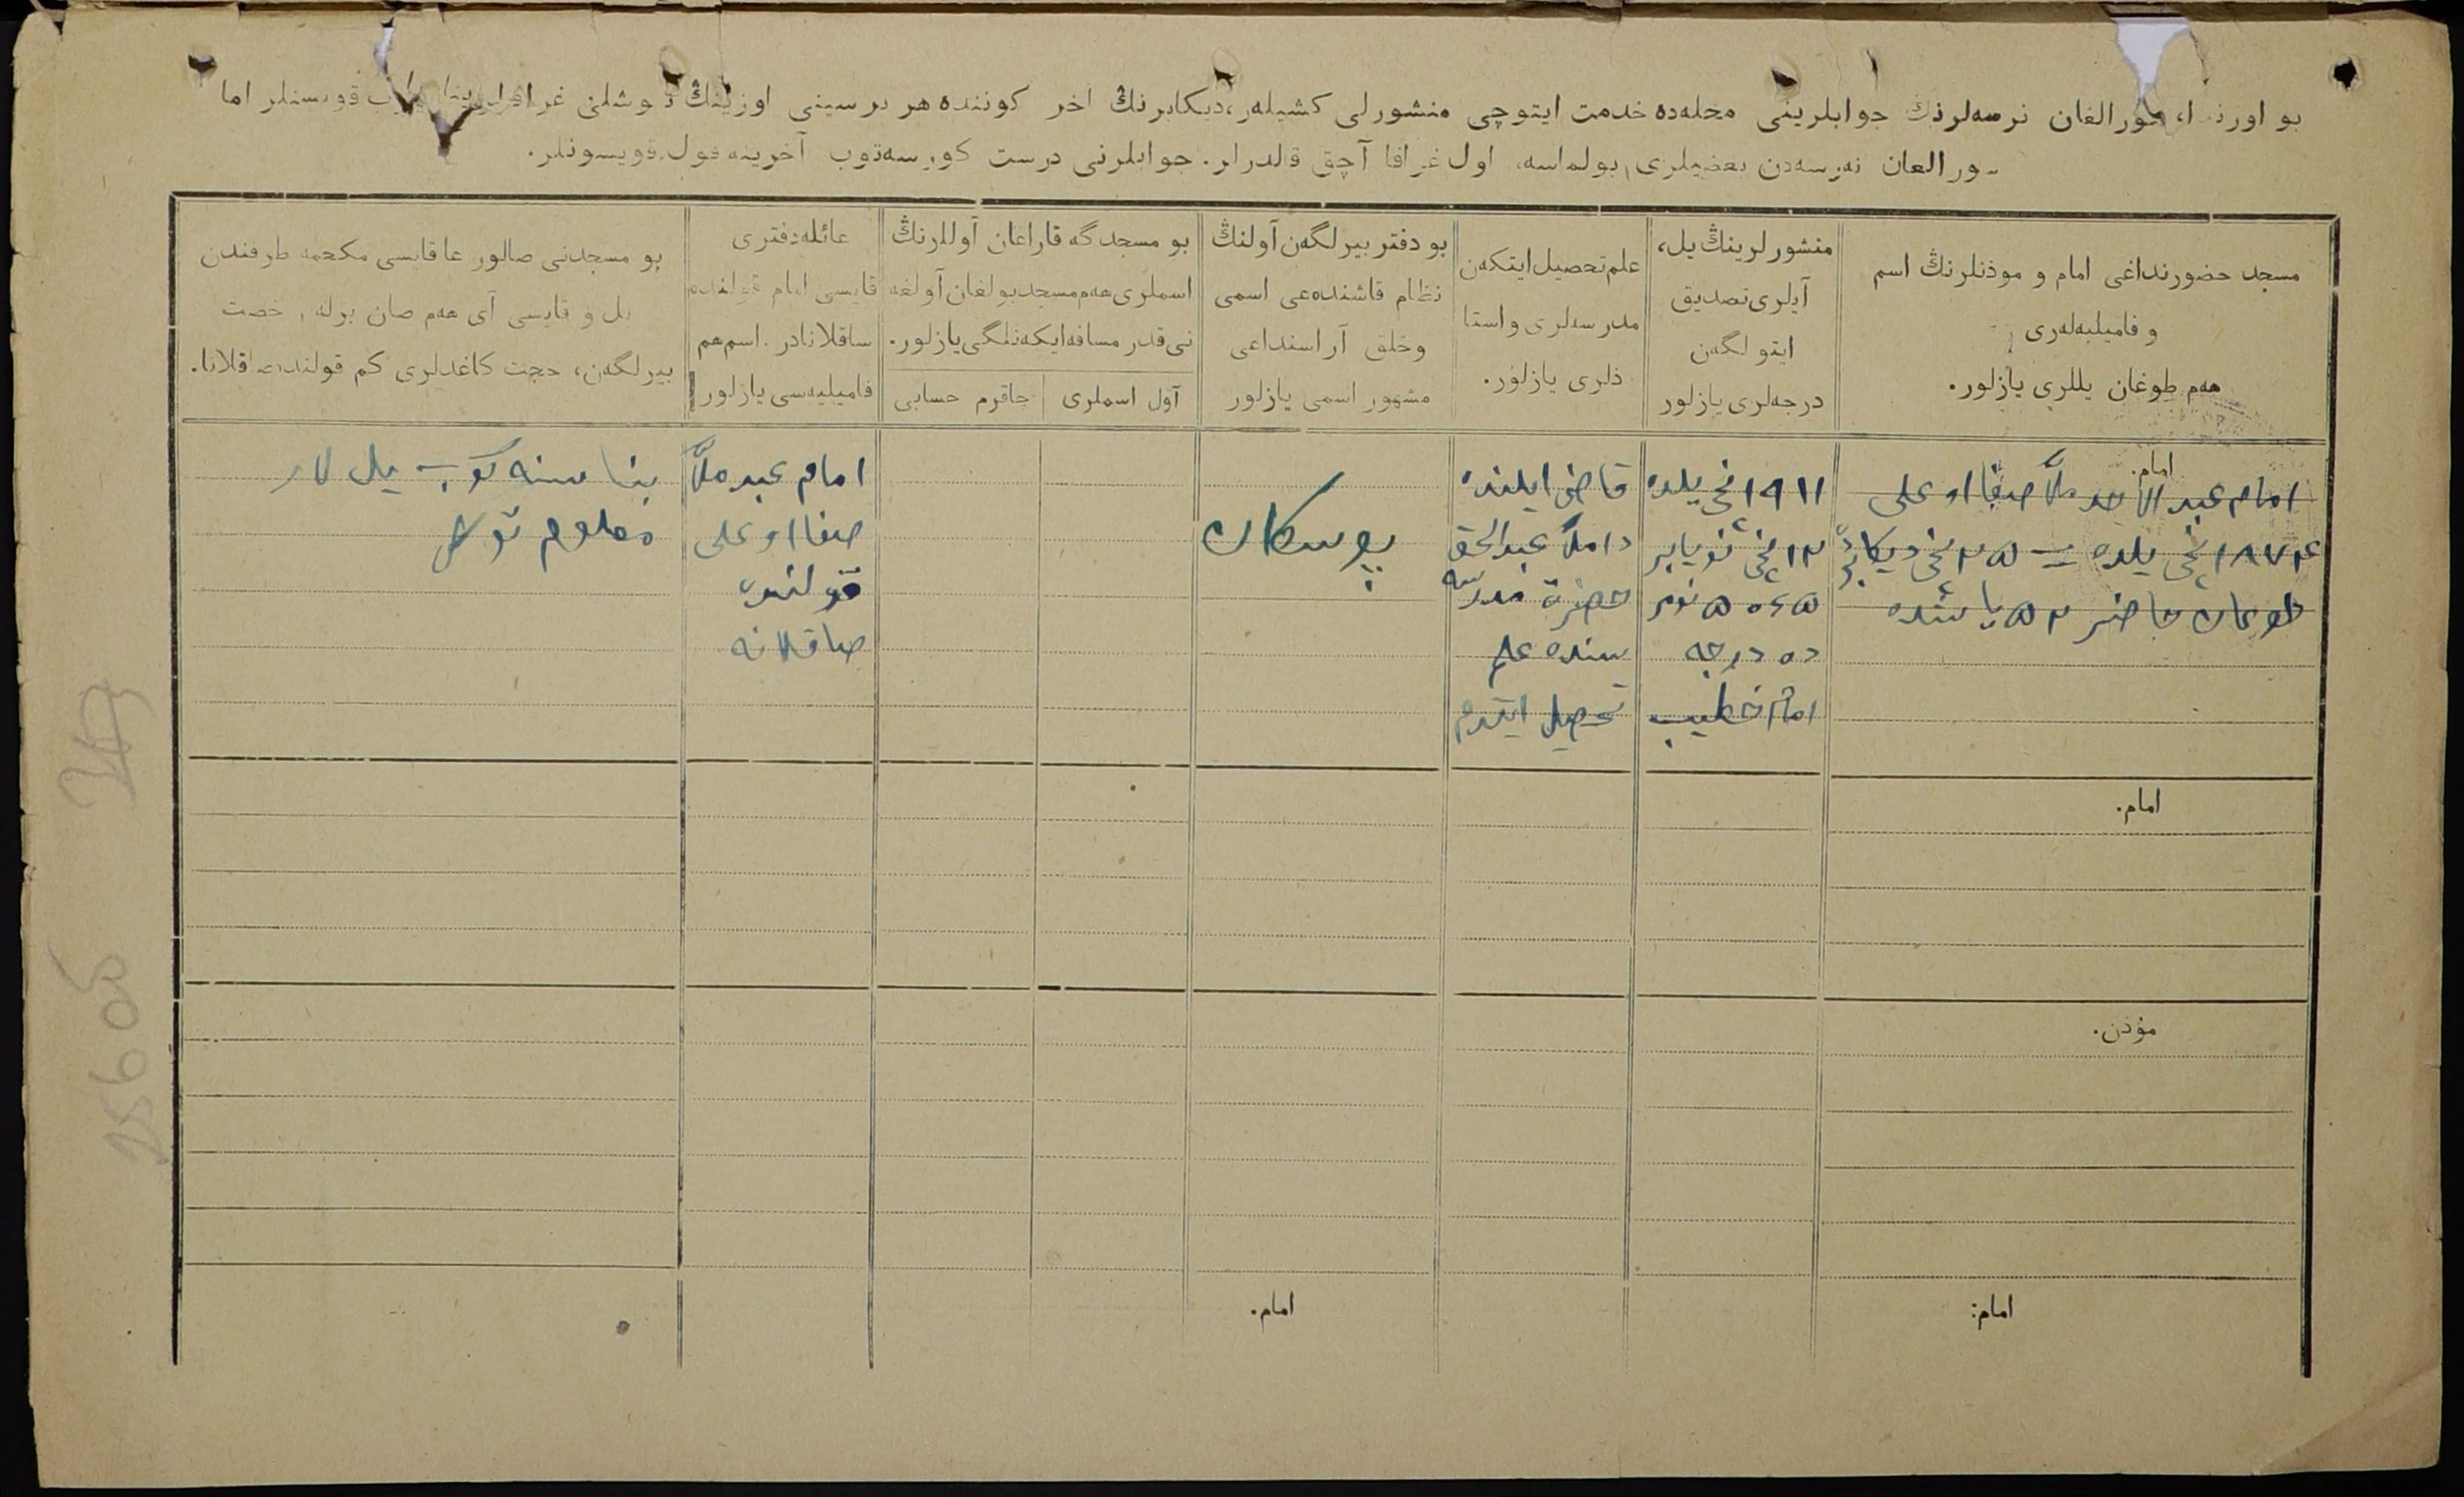 بو اورندا، صورالغان نرسەلرنڭ جوابلرینی محلەدە خدمت ایتوچی منشورلی کشیلەر، دیکابرنڭ اخر کونندە هر برسینی اوزینڭ توشلی غرافالرینا قویسنلر اما
صورالغان نەرسەدن بعضیلری بولماسە، اول غرافا آچق قالدرلر. جوابلرنی درست کورسەتوب آخرینە قول قویسونلر.
مسجد حضورنداغی امام و موذنلرنڭ اسم
و فامیلیەلەری
هەم طوغان یللری یازلور.
منشورلرینڭ یل،
آیلری تصدیق
ایتولگەن
درجەلری یازلور
علم تحصیل ایتکەن
مدرسەلری و استا
ذلری یازلور.
بو دفتر بیرلگەن آولنڭ
نظام قاشندەعی اسمی
وخلق آراسنداعی
مشهور اسمی یازلور
بو مسجدگە قاراعان آوللرنڭ
اسملری هەم مسجد بولغان آولغە
نی قدر مسافە ایکەنلگی یازلور.
آول اسملری
چاقرم حسابی
عائلە دفتری
قایسی امام قولندە
ساقلانادر. اسم هم
فامیلیەسی یازلور
بو مسجدنی صالور عا قایسی محکمە طرفندن
یل و قایسی آی هەم صان برلە رخصت
بیرلگەن، حجت کاغدلری کم قولندە صاقلانا.
امام.
امام عبد الاحد ملاّ صفا اوعلی
۱۸۷۴ نچی یلدە ۲۵ نچی دیکابر
طوعان حاضر ۵۲ یاشدە
۱۹۱۱ نچی یلدە
۱۲ نچی نویابر
۵۰۶۵ نومر
دە درجە
امام خطیب
قاضی ایلندە
داملا عبدالحق
حضرة مدرسە
سندە علم
تحصیل ایتدم
پوسکان
امام عبد ملاّ
صفا اوعلی
قولندە
صاقلانە
بناسنە کوب یل لار
معلوم توگل
امام.
مؤذن.
امام:
امام.
25605